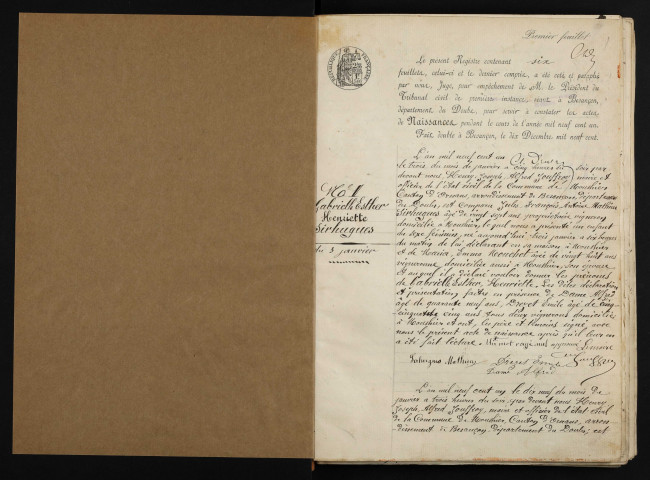 Premier feuillet
Le présent Registre contenant six
feuillets, celui-ci et le dernier compris, a été coté et paraphé
par nous, Juge, pour empêchement de M. le Président du
Tribunal civil de première instance, séant à Besançon,
département du Doubs, pour servir à constater les actes
de Naissances pendant le cours de l'année mil neuf cent un.
Fait double à Besançon, le dix Décembre mil neuf cent.
RÉPUBLIQUE FRANÇAISE
No 1
Gabrielle Esther
Henriette
Sirhugues
du 3 janvier
L'an mil neuf cent un
le trois du mois de janvier à cinq heures du soir par
devant nous Henry Joseph Alfred Jouffroy maire et
officier de l'état civil de la Commune de Mouthier
Canton d'Ornans, arrondissement de Besançon, département
du Doubs, est comparu Jules François Antoine Mathieu
Sirhugues âgé de vingt sept ans propriétaire vigneron
domicilié à Mouthier, lequel nous a présenté un enfant
du sexe féminin, né aujourd'hui trois janvier à six heures
du matin de lui déclarant en sa maison à Mouthier
et de Maria Emma âgée de vingt huit ans
vigneronne domiciliée aussi à Mouthier, son épouse
et auquel il a déclaré vouloir donner les prénoms
de Gabrielle Esther Henriette. Les dites déclaration
et présentation faites en présence de Dame Alfred
âgé de quarante neuf ans, Drezet Emile âgé de cinq
cinquante cinq ans tous deux vignerons domiciliés
à Mouthier et ont, les père et témoins signé avec
nous le présent acte de naissance après qu'il leur en
a été fait lecture. Un mot rayé nul approuvé
Sirhugues Mathieu Drezet Emile
Dame Alfred
L'an mil neuf cent un le dix neuf du mois de
janvier à trois heures du soir, par devant nous Henry
Joseph Alfred Jouffroy, maire et officier de l'état civil
de la Commune de Mouthier, Canton d'Ornans, arron-
dissement de Besançon, département du Doubs, est